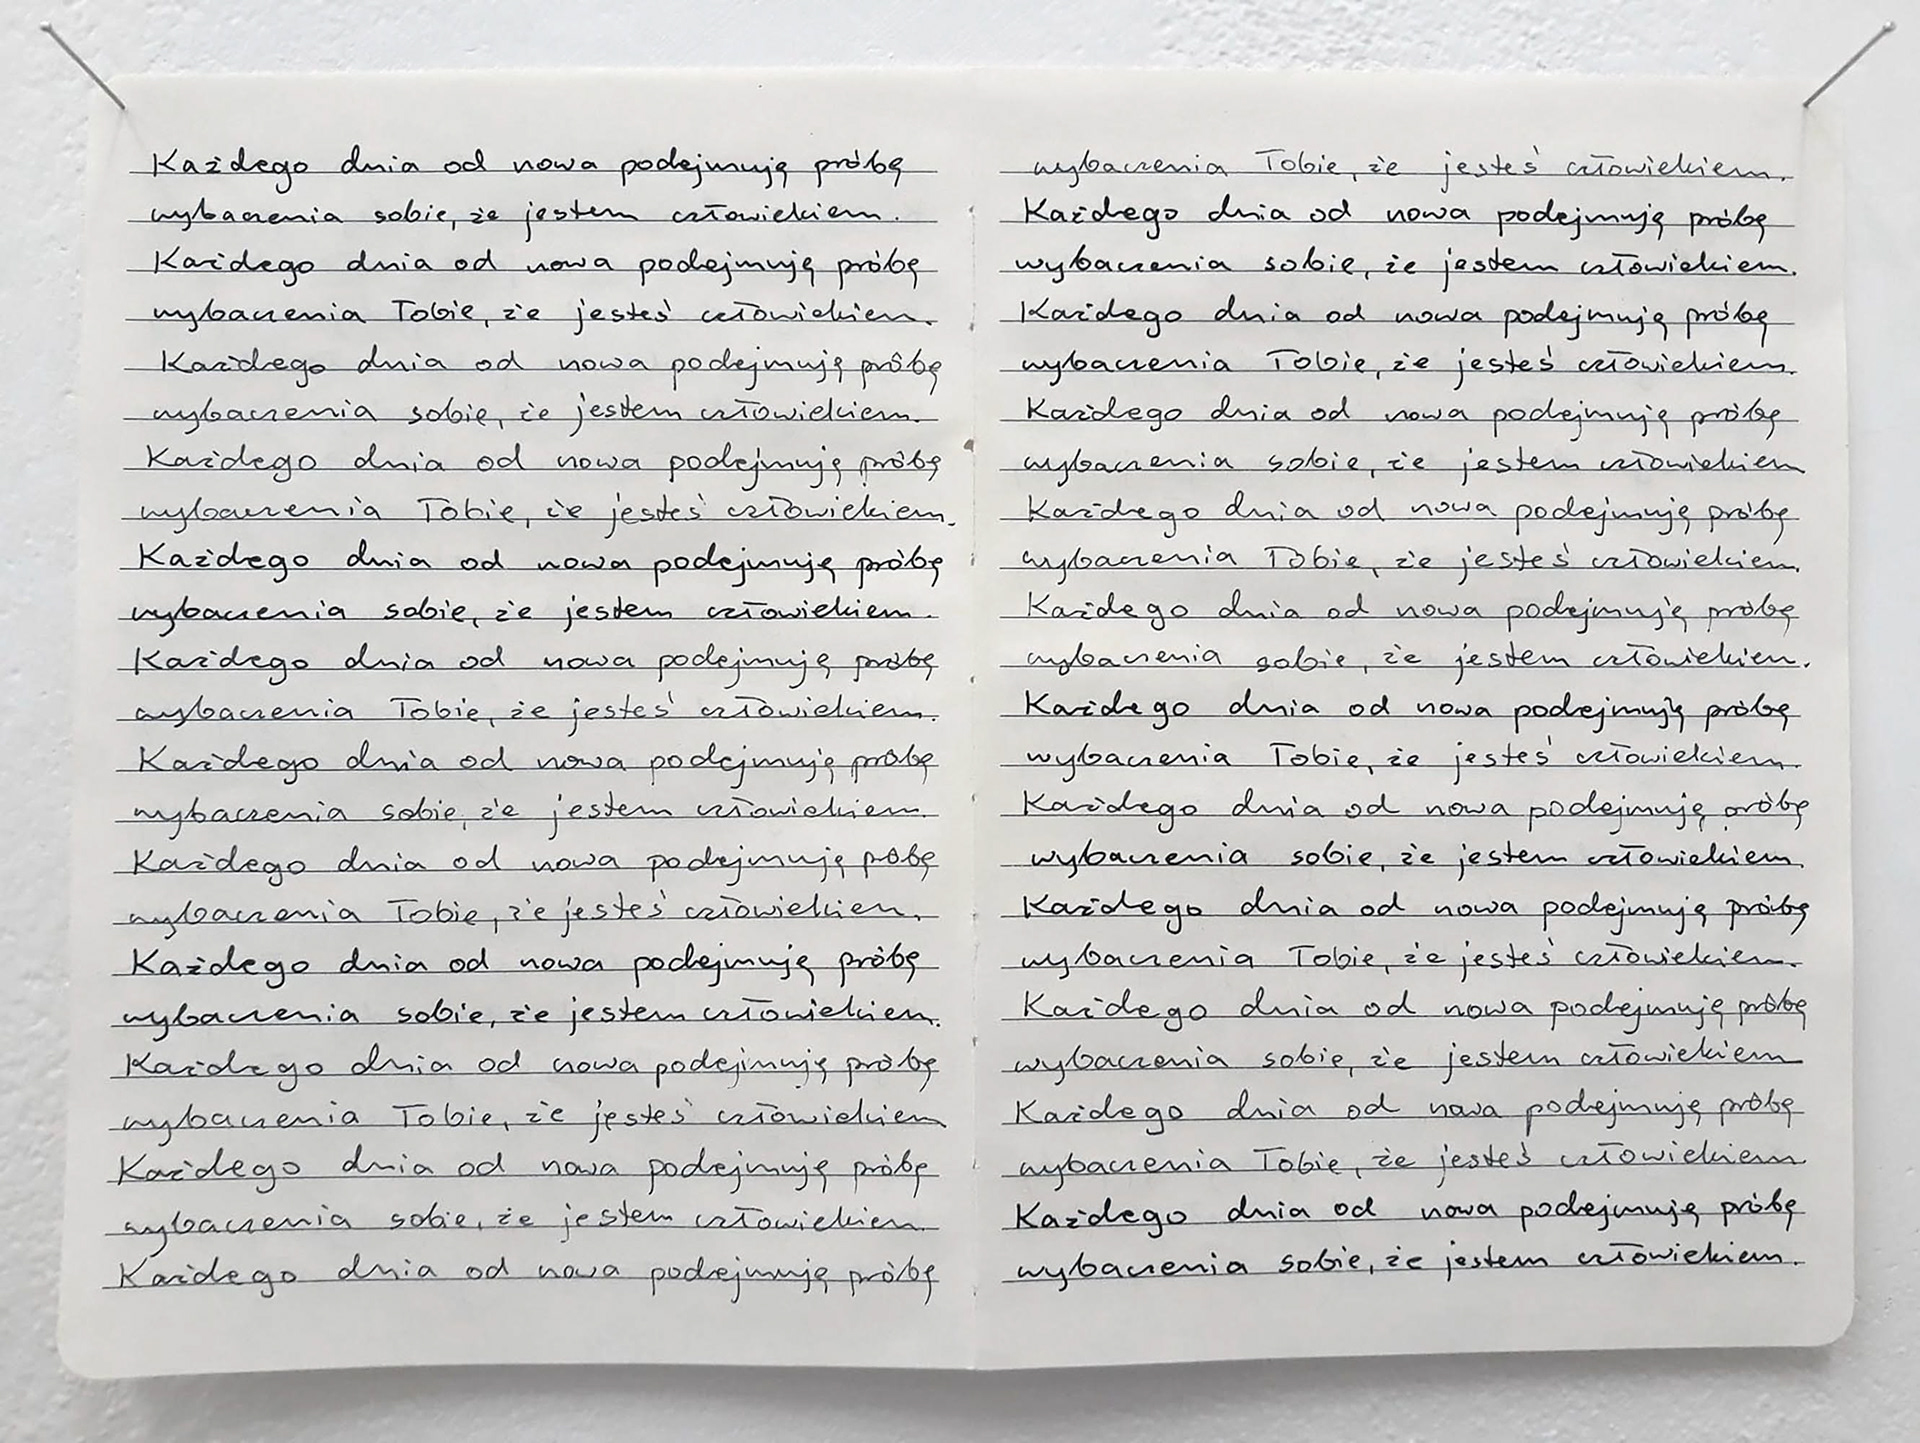 Każdego dnia od nowa podejmuję próbę
wybaczenia sobie, że jestem człowiekiem.
Każdego dnia od nowa podejmuję próbę
wybaczenia Tobie, że jesteś człowiekiem.
Każdego dnia od nowa podejmuję próbę
wybaczenia sobie, że jestem człowiekiem.
Każdego dnia od nowa podejmuję próbę
wybaczenia Tobie, że jesteś człowiekiem.
Każdego dnia od nowa podejmuję próbę
wybaczenia sobie, że jestem człowiekiem.
Każdego dnia od nowa podejmuję próbę
wybaczenia Tobie, że jesteś człowiekiem.
Każdego dnia od nowa podejmuję próbę
wybaczenia sobie, że jestem człowiekiem.
Każdego dnia od nowa podejmuję próbę
wybaczenia Tobie, że jesteś człowiekiem.
Każdego dnia od nowa podejmuję próbę
wybaczenia sobie, że jestem człowiekiem.
Każdego dnia od nowa podejmuję próbę
wybaczenia Tobie, że jesteś człowiekiem
Każdego dnia od nowa podejmuję próbę
wybaczenia sobie, że jestem człowiekiem.
Każdego dnia od nowa podejmuję próbę
wybaczenia Tobie, że jesteś człowiekiem.
Każdego dnia od nowa podejmuję próbę
wybaczenia sobie, że jestem człowiekiem.
Każdego dnia od nowa podejmuję próbę
wybaczenia Tobie, że jesteś człowiekiem.
Każdego dnia od nowa podejmuję próbę
wybaczenia sobie, że jestem człowiekiem
Każdego dnia od nowa podejmuję próbę
wybaczenia Tobie, że jesteś człowiekiem.
Każdego dnia od nowa podejmuję próbę
wybaczenia sobie, że jestem człowiekiem.
Każdego dnia od nowa podejmuję próbę
wybaczenia Tobie, że jesteś człowiekiem.
Każdego dnia od nowa podejmuję próbę
wybaczenia sobie, że jestem człowiekiem.
Każdego dnia od nowa podejmuję próbę
wybaczenia Tobie, że jesteś człowiekiem.
Każdego dnia od nowa podejmuję próbę
wybaczenia sobie, że jestem człowiekiem
Każdego dnia od nowa podejmuję próbę
wybaczenia Tobie, że jesteś człowiekiem
Każdego dnia od nowa podejmuję próbę
wybaczenia sobie, że jestem człowiekiem.